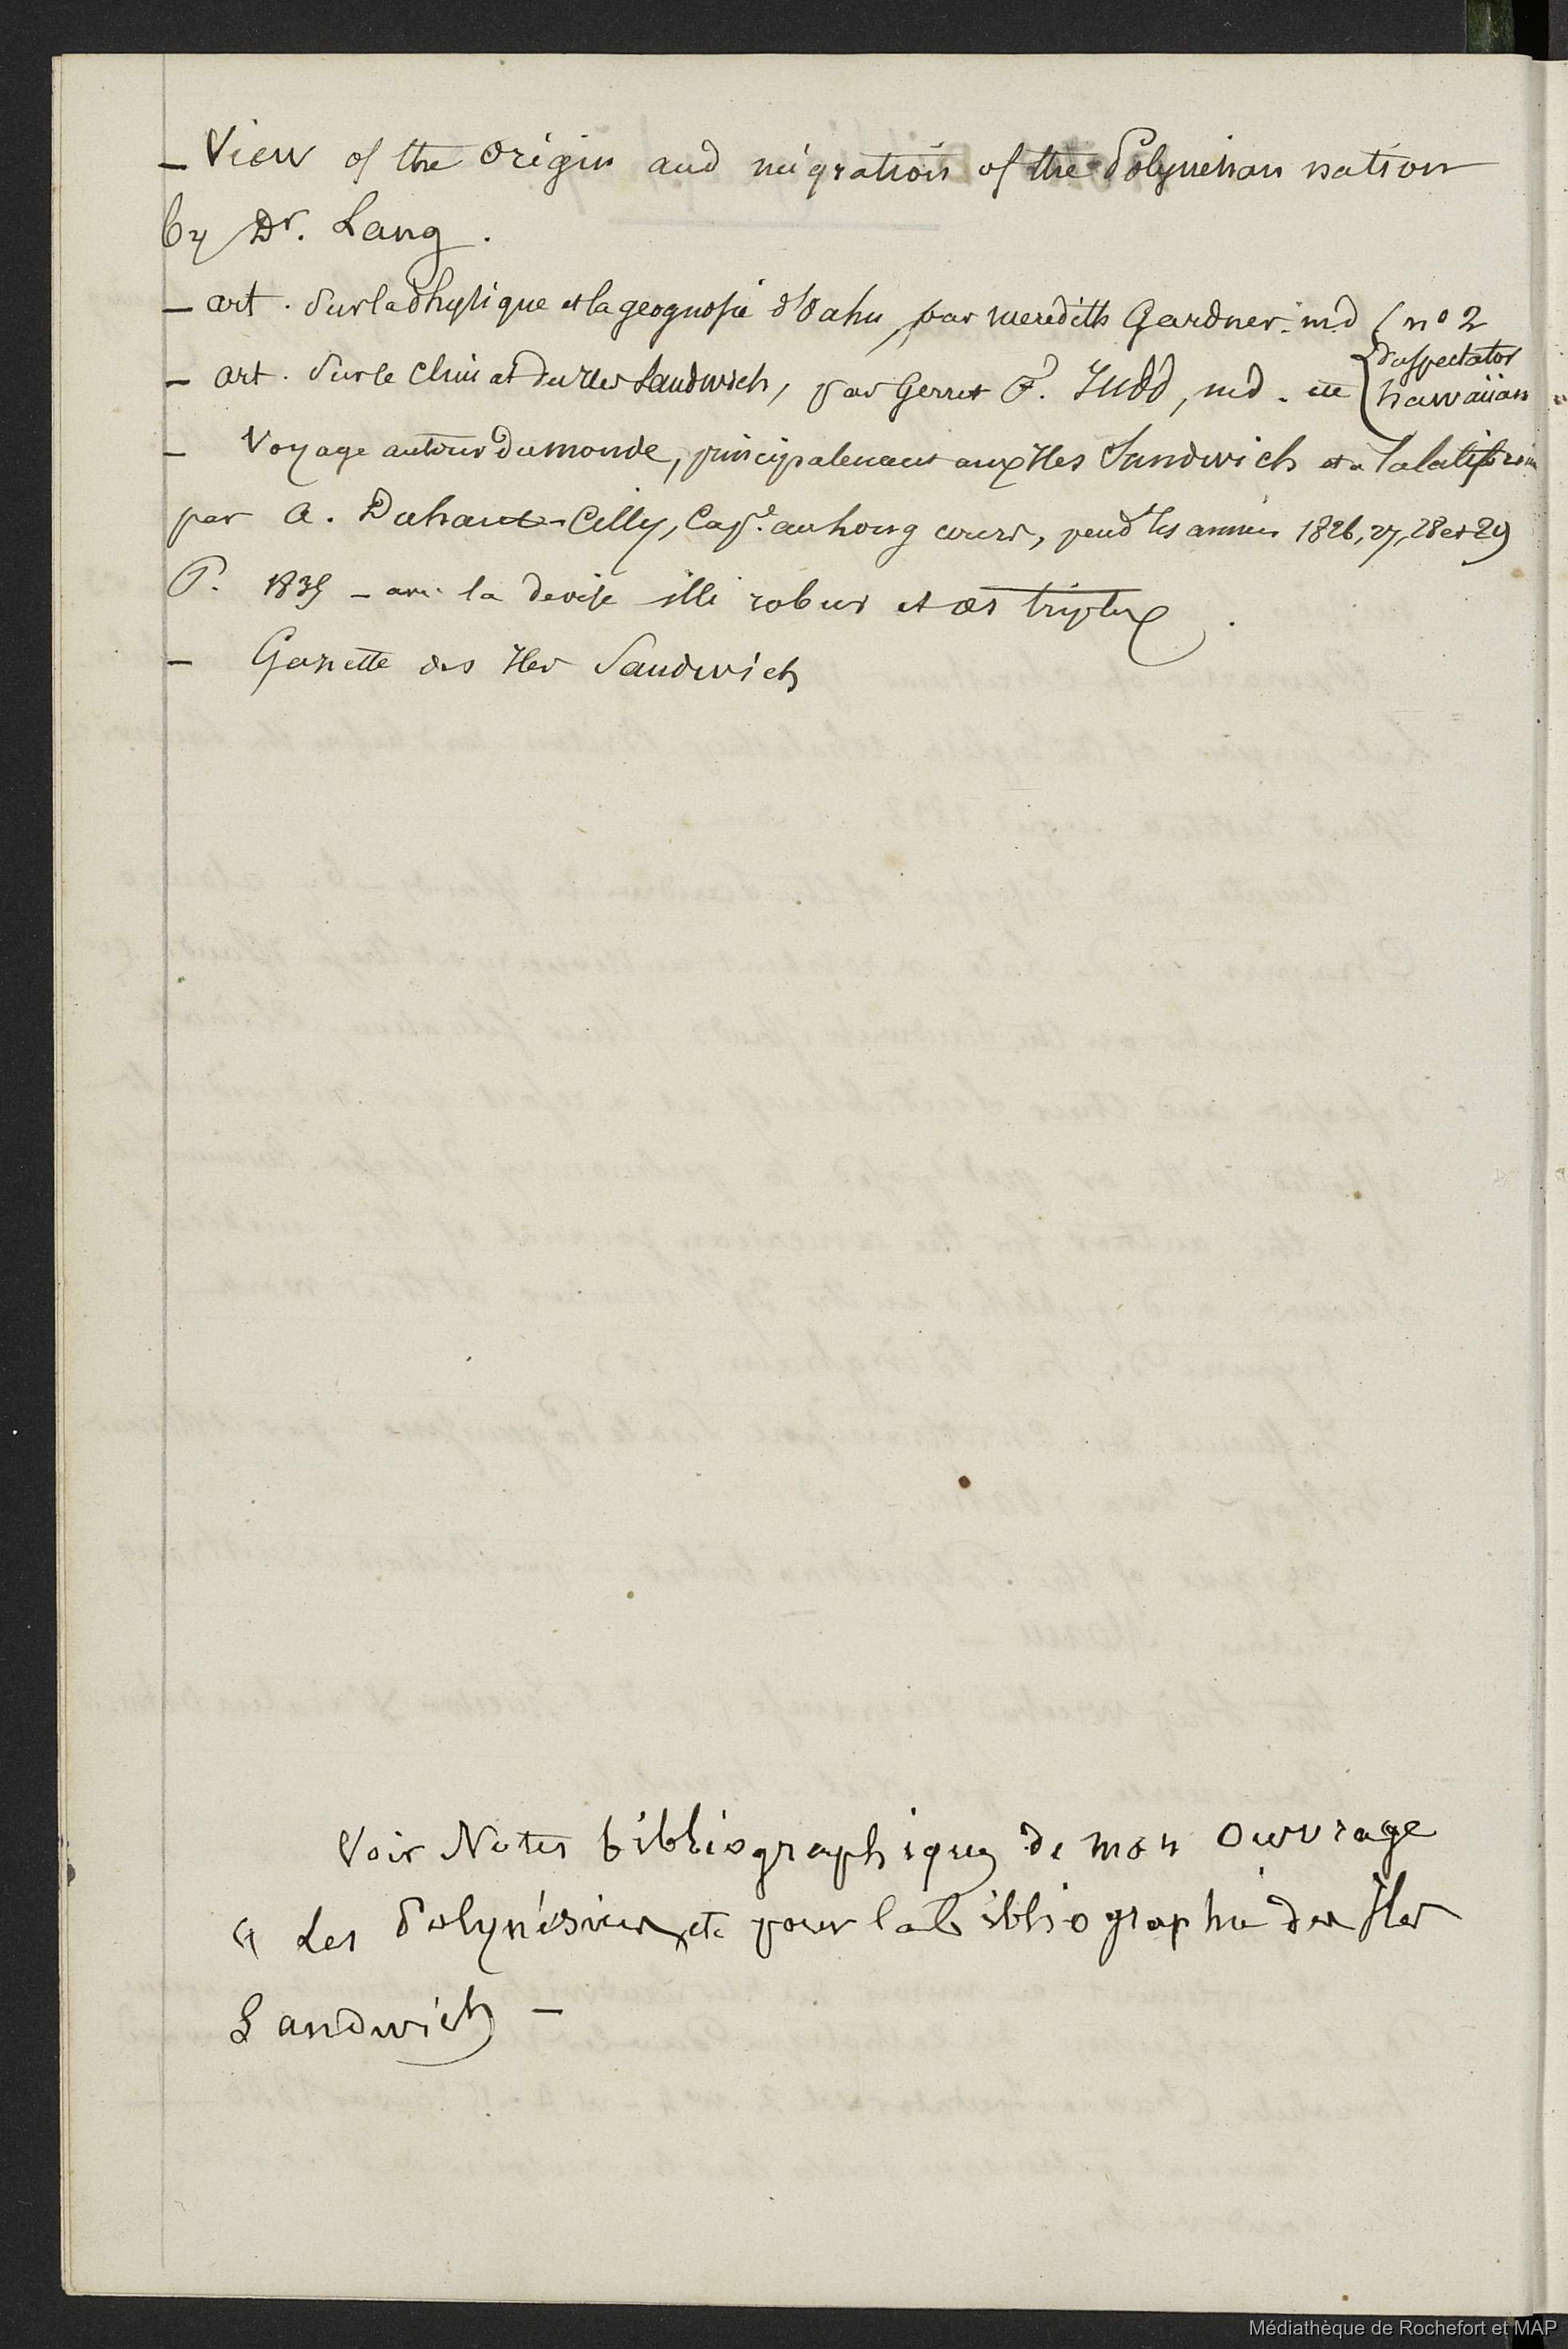 – View of the origin and migration of the Polynesian nation
by Dr. Lang.
– art. Sur la physique et la geognosie d'Oahu, par meredith Gardner. m.d
– art. Sur le climat des Iles Sandwich, par Gerret P. Judd, md. etc
( n° 2
du spectator
hawaiian
– Voyage autour du monde, principalement aux Iles Sandwich et a la
par A. Duhaut-Cilly, Cape. au long cours, pendt les années 1826, 27, 28 et 29
P. 1835 – avec la devise illi robur et œs triplex.
– Gazette des Iles Sandwich
Voir Notes bibliographiques de mon ouvrage
" Les Polynésiens, etc pour la bibliographie des Iles
Sandwich –
Médiathèque de Rochefort et MAP